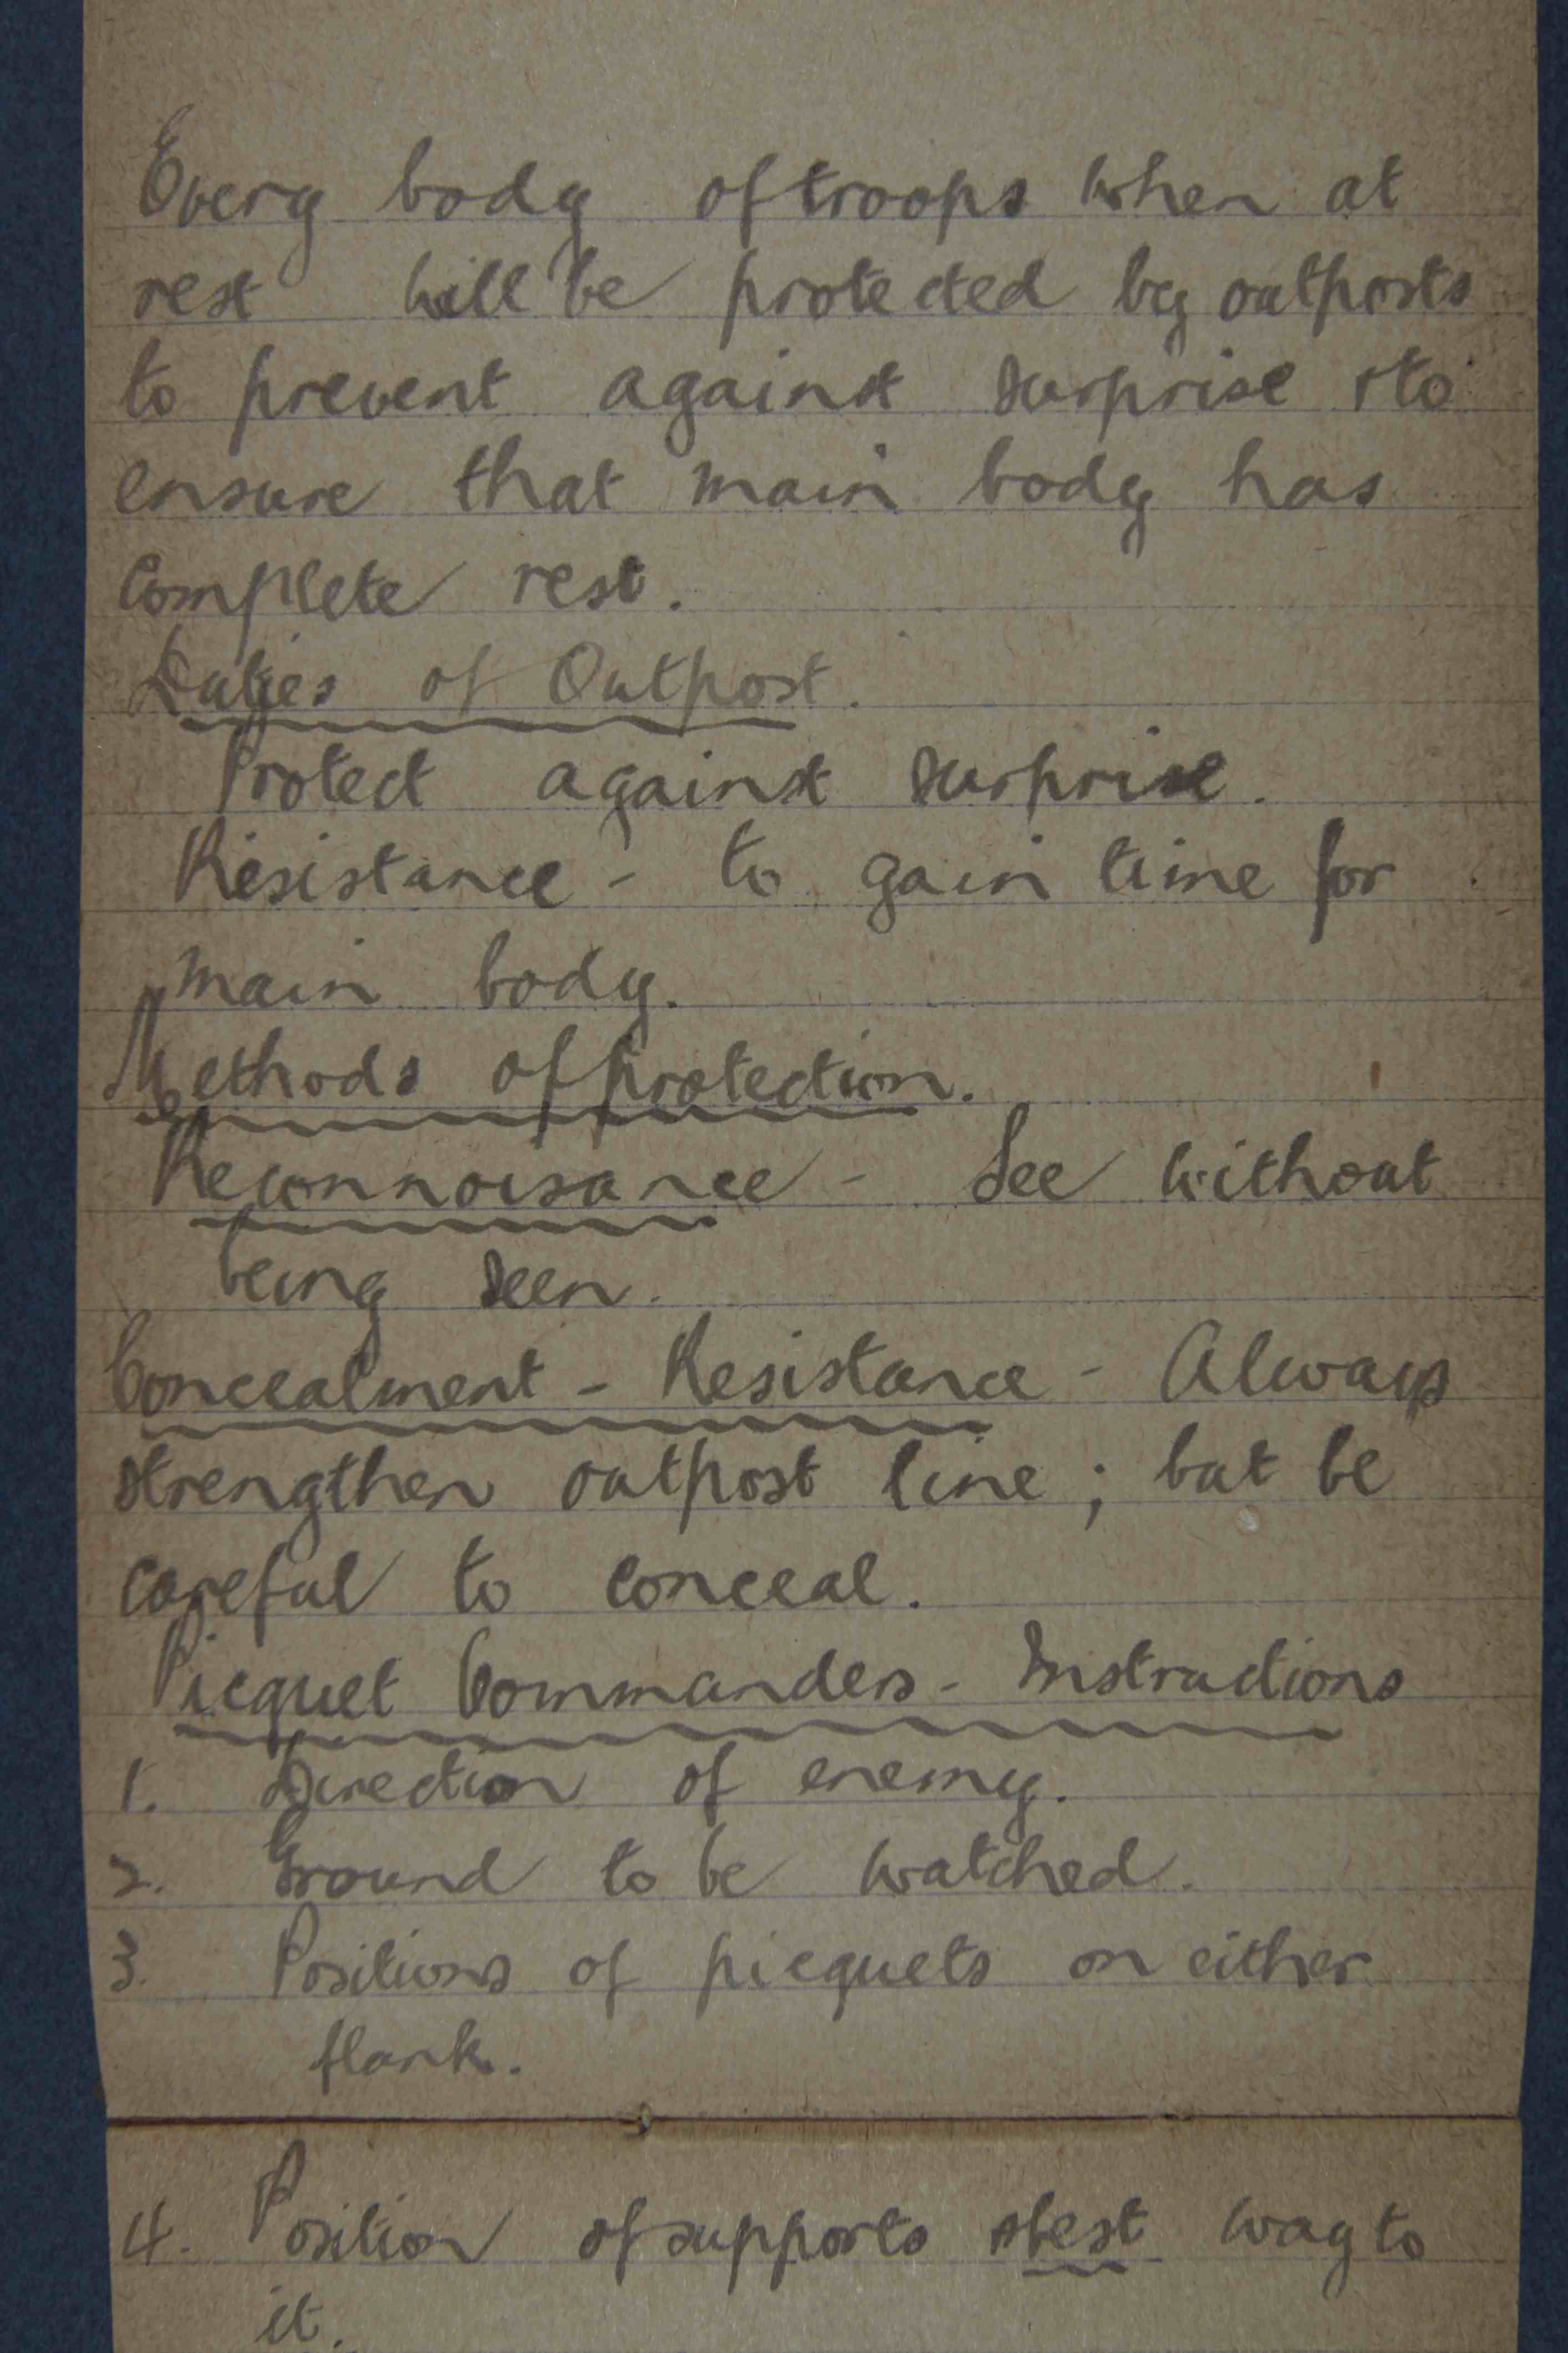 Every body of troops when at
rest will be protected by outposts
to prevent against surprise & to
ensure that main body has
complete rest.
Duties of Outpost.
Protect against surprise.
Resistance - to gain time for
main body.
Methods of protection.
Reconnoisance - See without
being seen.
Concealment - Resistance - Always
strengthen outpost line ; but be
careful to conceal.
Picquet Commanders - Instructions
1. Direction of enemy.
2. Ground to be watched.
3. Positions of picquets on either
flank.
4. Position of supports & best way to
it.